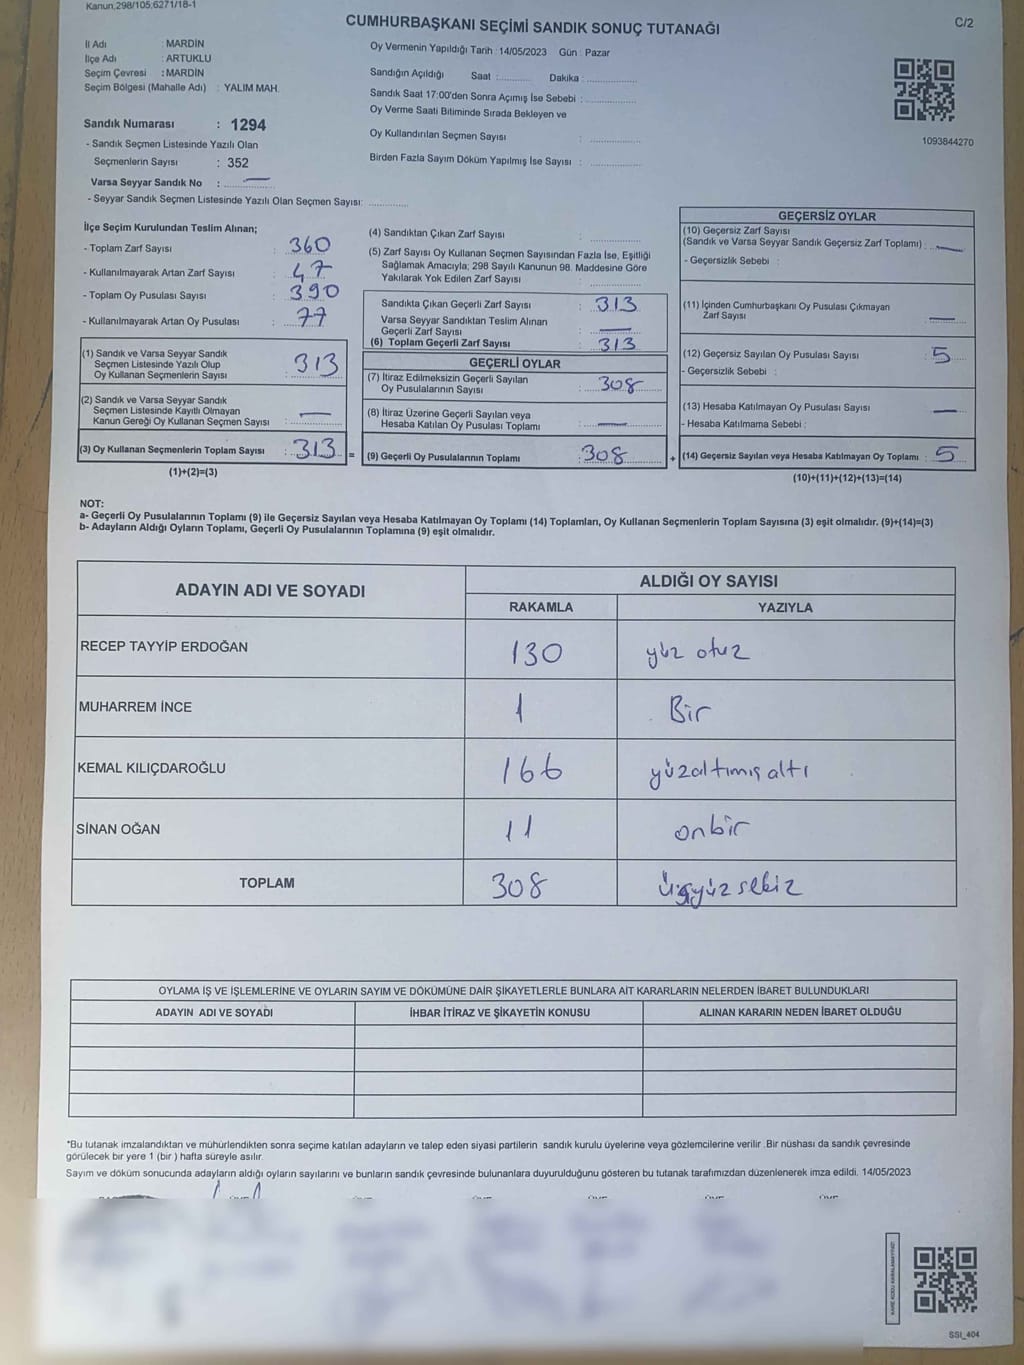 Kanun,298/105;6271/18-1
CUMHURBAŞKANI SEÇİMİ SANDIK SONUÇ TUTANAĞI
C/2
İl Adı : MARDİN
İlçe Adı : ARTUKLU
Seçim Çevresi : MARDİN
Seçim Bölgesi (Mahalle Adı) : YALIM MAH.
Sandık Numarası : 1294
- Sandık Seçmen Listesinde Yazılı Olan
Seçmenlerin Sayısı : 352
Varsa Seyyar Sandık No : —
- Seyyar Sandık Seçmen Listesinde Yazılı Olan Seçmen Sayısı: ............
Oy Vermenin Yapıldığı Tarih : 14/05/2023 Gün : Pazar
Sandığın Açıldığı Saat :............ Dakika :...............
Sandık Saat 17:00'den Sonra Açımış İse Sebebi : ...............
Oy Verme Saati Bitiminde Sırada Bekleyen ve
Oy Kullandırılan Seçmen Sayısı : ...............
Birden Fazla Sayım Döküm Yapılmış İse Sayısı : ...............
1093844270
İlçe Seçim Kurulundan Teslim Alınan;
- Toplam Zarf Sayısı : 360
- Kullanılmayarak Artan Zarf Sayısı : 47
- Toplam Oy Pusulası Sayısı : 390
- Kullanılmayarak Artan Oy Pusulası : 77
(1) Sandık ve Varsa Seyyar Sandık
Seçmen Listesinde Yazılı Olup
Oy Kullanan Seçmenlerin Sayısı : 313
(2) Sandık ve Varsa Seyyar Sandık
Seçmen Listesinde Kayıtlı Olmayan
Kanun Gereği Oy Kullanan Seçmen Sayısı : —
(3) Oy Kullanan Seçmenlerin Toplam Sayısı : 313 =
(1)+(2)=(3)
(4) Sandıktan Çıkan Zarf Sayısı : ...............
(5) Zarf Sayısı Oy Kullanan Seçmen Sayısından Fazla İse, Eşitliği
Sağlamak Amacıyla; 298 Sayılı Kanunun 98. Maddesine Göre
Yakılarak Yok Edilen Zarf Sayısı : ...............
Sandıkta Çıkan Geçerli Zarf Sayısı : 313
Varsa Seyyar Sandıktan Teslim Alınan
Geçerli Zarf Sayısı : —
(6) Toplam Geçerli Zarf Sayısı : 313
GEÇERLİ OYLAR
(7) İtiraz Edilmeksizin Geçerli Sayılan
Oy Pusulalarının Sayısı : 308
(8) İtiraz Üzerine Geçerli Sayılan veya
Hesaba Katılan Oy Pusulası Toplamı : —
(9) Geçerli Oy Pusulalarının Toplamı : 308 +
GEÇERSİZ OYLAR
(10) Geçersiz Zarf Sayısı
(Sandık ve Varsa Seyyar Sandık Geçersiz Zarf Toplamı) : —
- Geçersizlik Sebebi :
(11) İçinden Cumhurbaşkanı Oy Pusulası Çıkmayan
Zarf Sayısı : —
(12) Geçersiz Sayılan Oy Pusulası Sayısı : 5
- Geçersizlik Sebebi :
(13) Hesaba Katılmayan Oy Pusulası Sayısı : —
- Hesaba Katılmama Sebebi :
(14) Geçersiz Sayılan veya Hesaba Katılmayan Oy Toplamı : 5
(10)+(11)+(12)+(13)=(14)
NOT:
a- Geçerli Oy Pusulalarının Toplamı (9) ile Geçersiz Sayılan veya Hesaba Katılmayan Oy Toplamı (14) Toplamları, Oy Kullanan Seçmenlerin Toplam Sayısına (3) eşit olmalıdır. (9)+(14)=(3)
b- Adayların Aldığı Oyların Toplamı, Geçerli Oy Pusulalarının Toplamına (9) eşit olmalıdır.
ADAYIN ADI VE SOYADI
ALDIĞI OY SAYISI
RAKAMLA YAZIYLA
RECEP TAYYİP ERDOĞAN 130 yüz otuz
MUHARREM İNCE 1 Bir
KEMAL KILIÇDAROĞLU 166 yüzaltımış altı
SİNAN OĞAN 11 onbir
TOPLAM 308 üçyüz sekiz
OYLAMA İŞ VE İŞLEMLERİNE VE OYLARIN SAYIM VE DÖKÜMÜNE DAİR ŞİKAYETLERLE BUNLARA AİT KARARLARIN NELERDEN İBARET BULUNDUKLARI
ADAYIN ADI VE SOYADI İHBAR İTİRAZ VE ŞİKAYETİN KONUSU ALINAN KARARIN NEDEN İBARET OLDUĞU
*Bu tutanak imzalandıktan ve mühürlendikten sonra seçime katılan adayların ve talep eden siyasi partilerin sandık kurulu üyelerine veya gözlemcilerine verilir .Bir nüshası da sandık çevresinde
görülecek bir yere 1 (bir ) hafta süreyle asılır.
Sayım ve döküm sonucunda adayların aldığı oyların sayılarını ve bunların sandık çevresinde bulunanlara duyurulduğunu gösteren bu tutanak tarafımızdan düzenlenerek imza edildi. 14/05/2023
KARE KODU KARALAMAYINIZ!
SSI_404